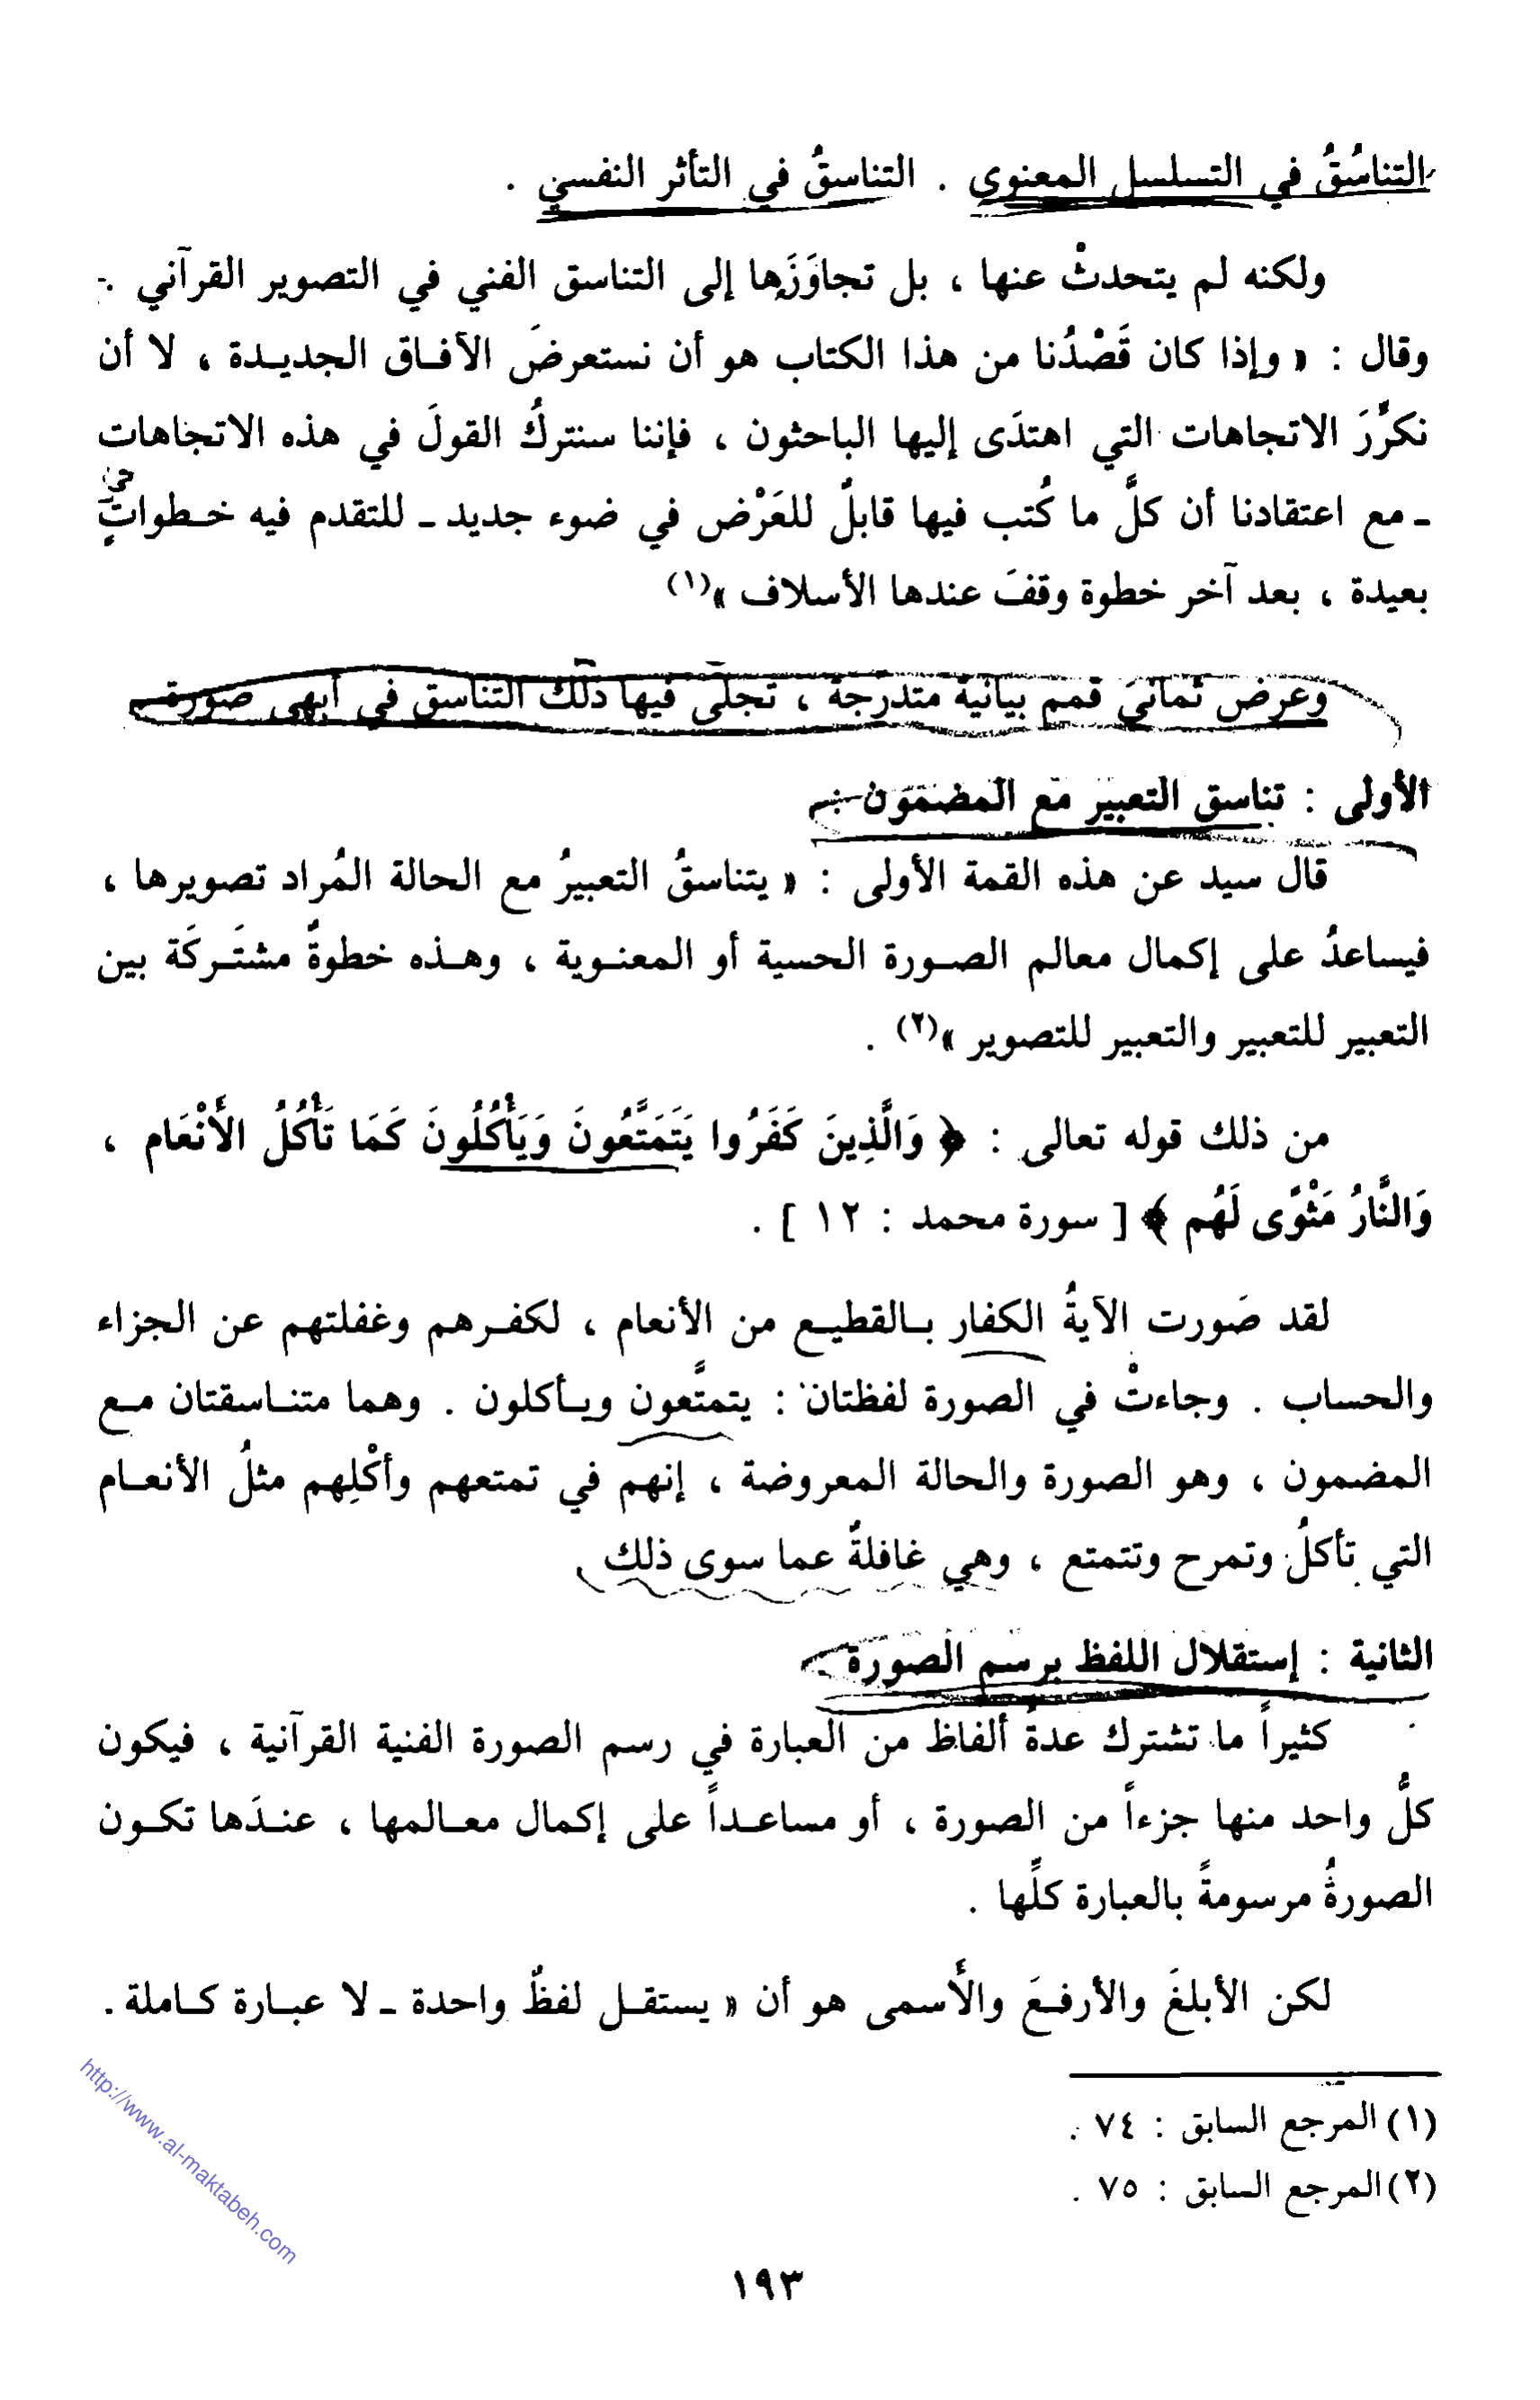 التناسُقُ في التسلسل المعنوي . التناسقُ في التأثر النفسي .
ولكنه لم يتحدثْ عنها ، بل تجاوَزَها إلى التناسق الفني في التصوير القرآني .
وقال : « وإذا كان قَصْدُنا من هذا الكتاب هو أن نستعرضَ الآفـاق الجديـدة ، لا أن
نكرِّرَ الاتجاهات التي اهتدَى إليها الباحثون ، فإننا سنتركُ القولَ في هذه الاتجاهات
ـ مع اعتقادنا أن كلَّ ما كُتب فيها قابلٌ للعَرْض في ضوء جديد ـ للتقدم فيه خـطواتٍ
بعيدة ، بعد آخر خطوة وقفَ عندها الأسلاف »(١)
وعرض ثمانيَ قمم بيانية متدرّجة ، تجلّى فيها ذلك التناسق في أبهى صورة
الأولى : تناسق التعبير مع المضمون :
قال سيد عن هذه القمة الأولى : « يتناسقُ التعبيرُ مع الحالة المُراد تصويرها ،
فيساعدُ على إكمال معالم الصـورة الحسية أو المعنـوية ، وهـذه خطوةٌ مشتَـركَة بين
التعبير للتعبير والتعبير للتصوير »(٢) .
من ذلك قوله تعالى : ﴿ وَالَّذِينَ كَفَرُوا يَتَمَتَّعُونَ وَيَأْكُلُونَ كَمَا تَأْكُلُ الأَنْعَام ،
وَالنَّارُ مَثْوًى لَهُم ﴾ [ سورة محمد : ١٢ ] .
لقد صَورت الآيةُ الكفار بـالقطيـع من الأنعام ، لكفـرهم وغفلتهم عن الجزاء
والحساب . وجاءتْ في الصورة لفظتان : يتمتَّعون ويـأكلون . وهما متنـاسقتان مـع
المضمون ، وهو الصورة والحالة المعروضة ، إنهم في تمتعهم وأكْلِهم مثلُ الأنعـام
التي تأكلُ وتمرح وتتمتع ، وهي غافلةٌ عما سوى ذلك .
الثانية : إستقلال اللفظ برسم الصورة :
كثيراً ما تشترك عدةُ ألفاظ من العبارة في رسم الصورة الفنية القرآنية ، فيكون
كلُّ واحد منها جزءاً من الصورة ، أو مساعـداً على إكمال معـالمها ، عنـدَها تكـون
الصورةُ مرسومةً بالعبارة كلِّها .
لكن الأبلغَ والأرفـعَ والأَسمى هو أن « يستقـل لفظٌ واحدة ـ لا عبـارة كـاملة .
(١) المرجع السابق : ٧٤ .
(٢) المرجع السابق : ٧٥ .
١٩٣
http://www.al-maktabeh.com